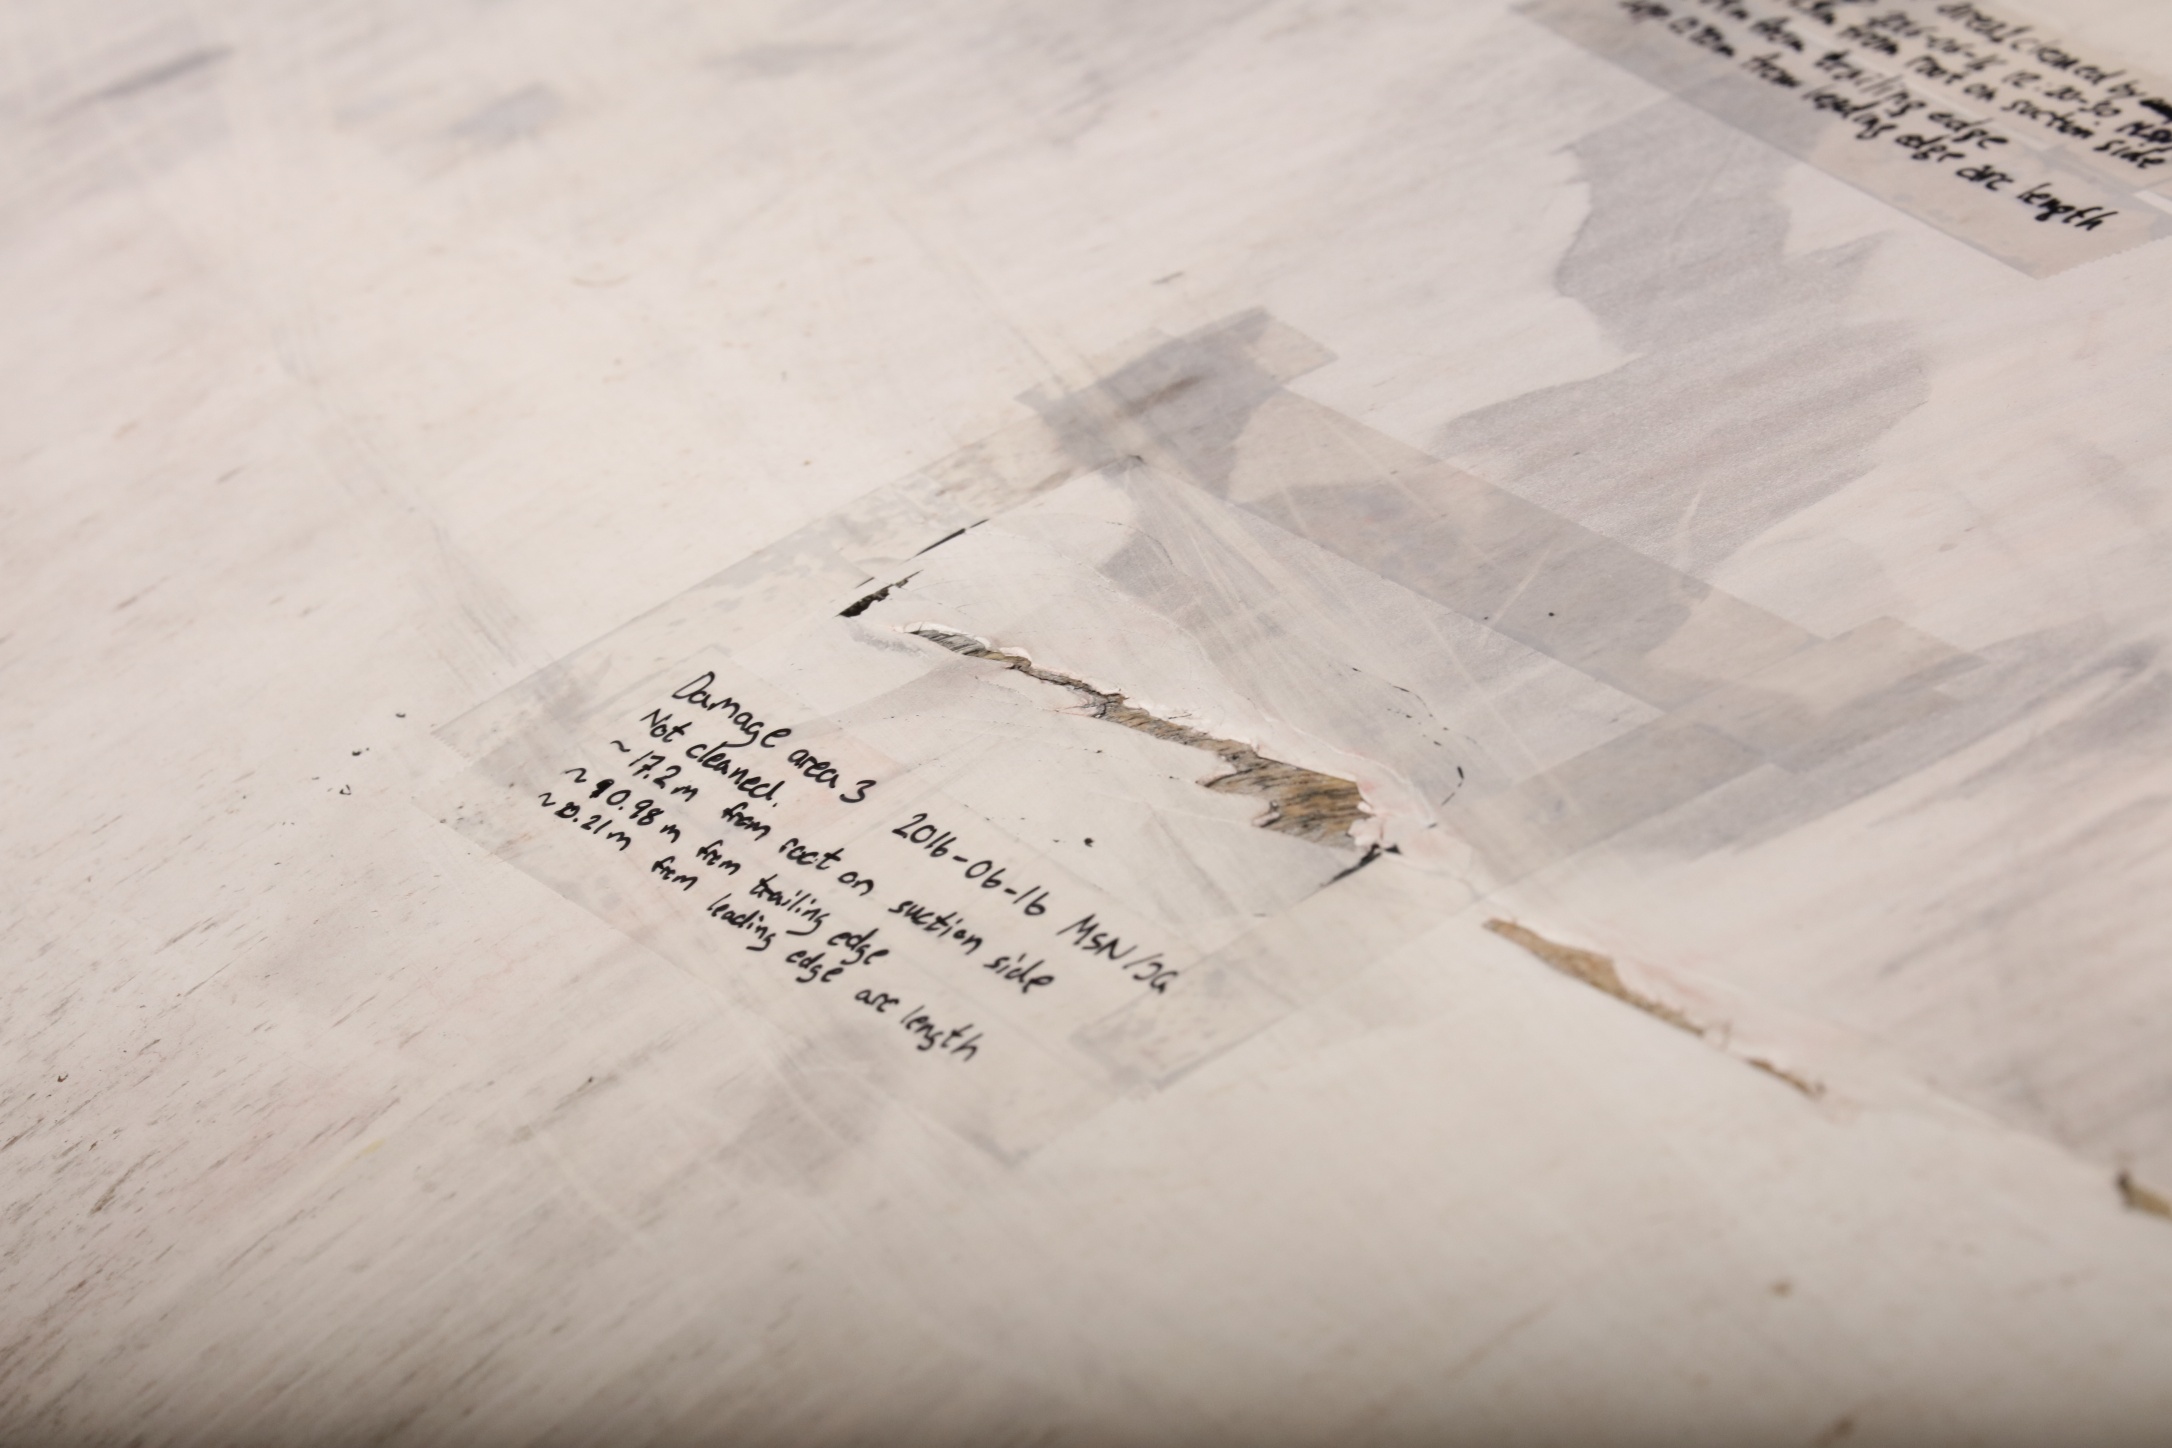 area cleaned by
12:30-
from root on suction side
from trailing edge
from leading edge arc length
Damage area 3 2016-06-16 MSN/JG
Not cleaned.
~17.2 m from root on suction side
~0.98 m from trailing edge
~0.21 m from leading edge arc length